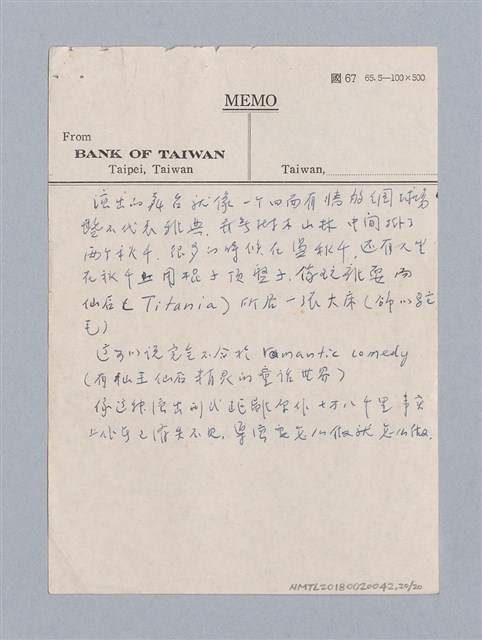 國 67 65.5—100×500
MEMO
From
BANK OF TAIWAN
Taipei, Taiwan
Taiwan,
演出的舞台就像一个四面有墙的網球場
既不代表雅典,也 山林 中間掛了
兩个秋千,很多的時候在盪秋千,还有人坐
在秋千上用棍子頂盤子,像玩雜耍 而
仙后( Titania ) 所居一張大床(飾以
毛)
這可以说完全不合於 romantic comedy
(有仙王仙后精灵的童话世界)
像這種演出形式距離原作 十万八千里 事实
上作者已消失不見,導演要怎么做就怎么做.
NMTL20180020042.20/20